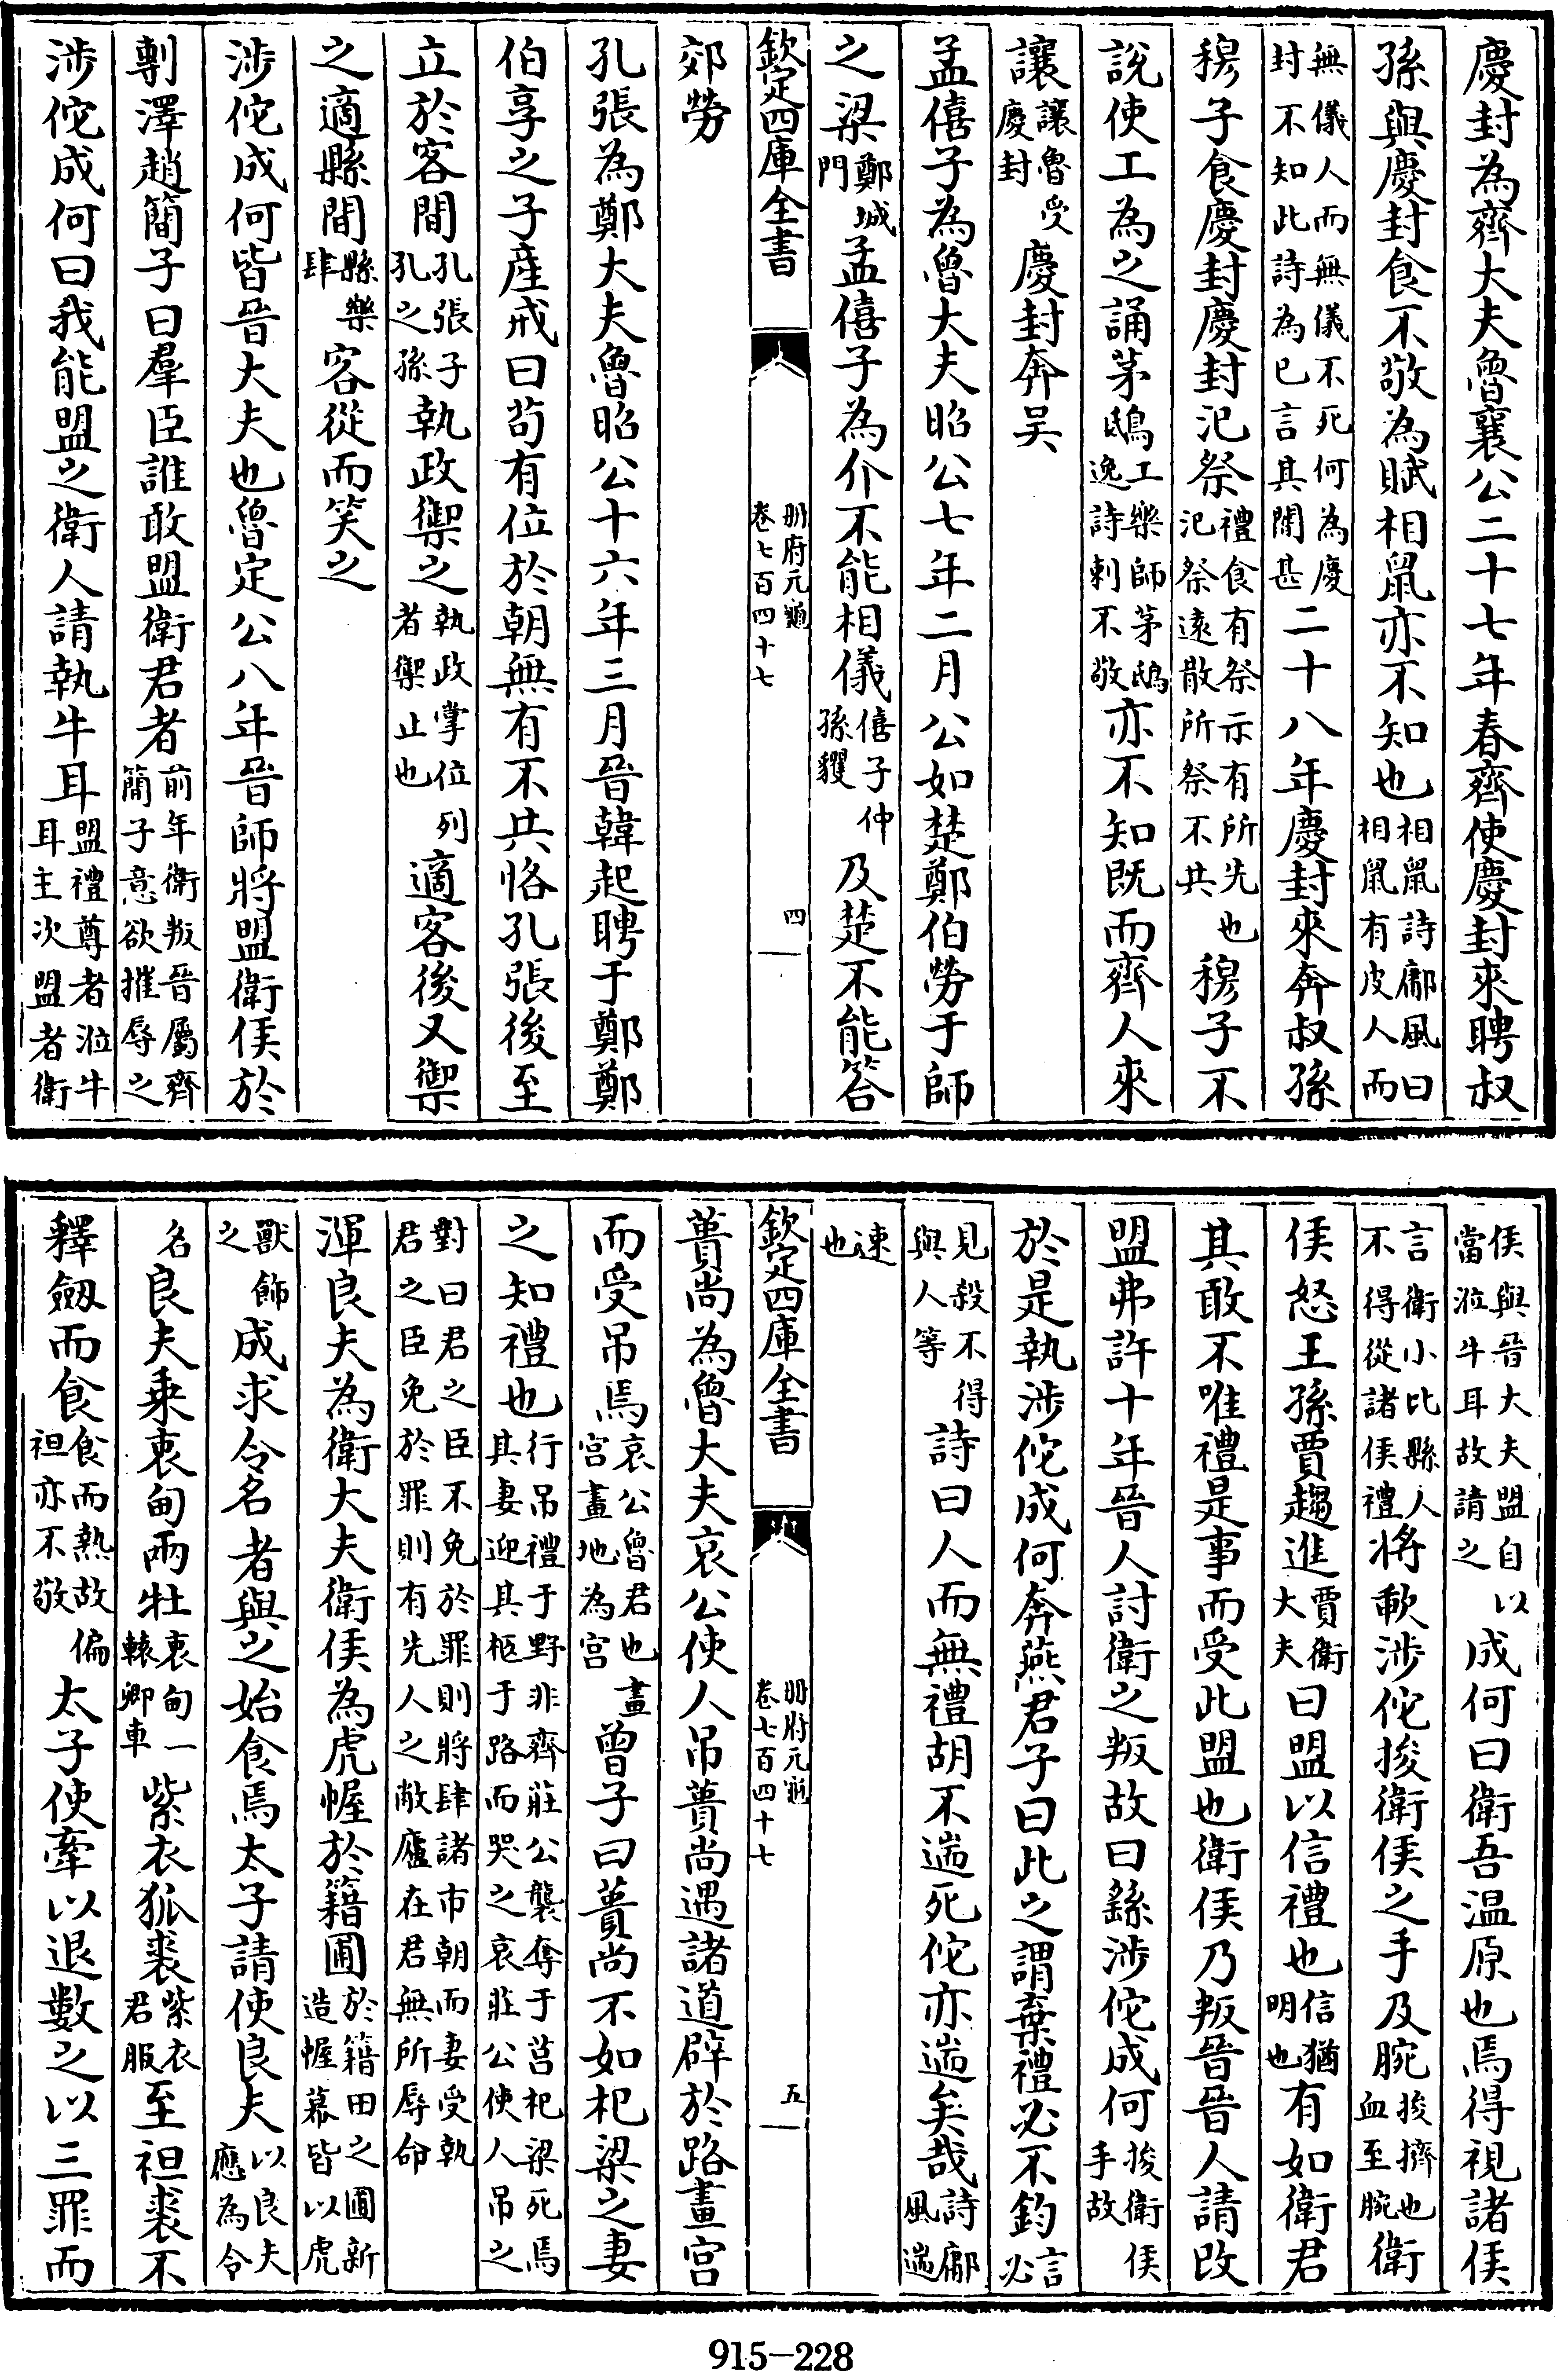 慶封為齊大夫魯襄公二十七年春齊使慶封來聘叔
孫與慶封食不敬為賦相鼠亦不知也相鼠詩鄘風曰相鼠有皮人而
無儀人而無儀不死何為慶封不知此詩為已言其闇甚二十八年慶封來奔叔孫
穆子食慶封慶封汜祭禮食有祭示有所先也汜祭遠散所祭不共穆子不
說使工為之誦茅鴟工樂師茅鴟逸詩刺不敬亦不知既而齊人來
讓讓魯受慶封慶封奔吳
孟僖子為魯大夫昭公七年二月公如楚鄭伯勞于師
之梁鄭城門孟僖子為介不能相儀僖子仲孫貜及楚不能答
欽定四庫全書 冊府元龜卷七百四十七 四
郊勞
孔張為鄭大夫魯昭公十六年三月晉韓起聘于鄭鄭
伯享之子產戒曰苟有位於朝無有不共恪孔張後至
立於客間孔張子孔之孫執政禦之執政掌位列者禦止也適客後又禦
之適縣間縣樂肆客從而笑之
涉佗成何皆晉大夫也魯定公八年晉師將盟衛侯於
剸澤趙簡子曰羣臣誰敢盟衛君者前年衛叛晉屬齊簡子意欲摧辱之
涉佗成何曰我能盟之衛人請執牛耳盟禮尊者涖牛耳主次盟者衛
侯與晉大夫盟自以當涖牛耳故請之成何曰衛吾温原也焉得視諸侯
言衛小比縣人不得從諸侯禮將歃涉佗捘衛侯之手及腕捘擠也血至腕衛
侯怒王孫賈趨進賈衛大夫曰盟以信禮也信猶明也有如衛君
其敢不唯禮是事而受此盟也衛侯乃叛晉晉人請改
盟弗許十年晉人討衛之叛故曰繇涉佗成何捘衛侯手故
於是執涉佗成何奔燕君子曰此之謂棄禮必不鈞言必
見殺不得與人等詩曰人而無禮胡不遄死佗亦遄矣哉詩鄘風遄
速也
欽定四庫全書 冊府元龜卷七百四十七 五
蕢尚為魯大夫哀公使人吊蕢尚遇諸道辟於路畫宫
而受吊焉哀公魯君也畫宫畫地為宫曾子曰蕢尚不如杞梁之妻
之知禮也行吊禮于野非齊莊公襲奪于莒杞梁死焉其妻迎其柩于路而哭之哀莊公使人吊之
對曰君之臣不免於罪則將肆諸市朝而妻受執君之臣免於罪則有先人之敝廬在君無所辱命
渾良夫為衛大夫衛侯為虎幄於籍圃於籍田之圃新造幄幕皆以虎
獸飾之成求令名者與之始食焉太子請使良夫以良夫應為令
名良夫乗衷甸兩牡衷甸一轅卿車紫衣狐裘紫衣君服至袒裘不
釋劔而食食而熱故偏袒亦不敬太子使牽以退數之以三罪而
915-228